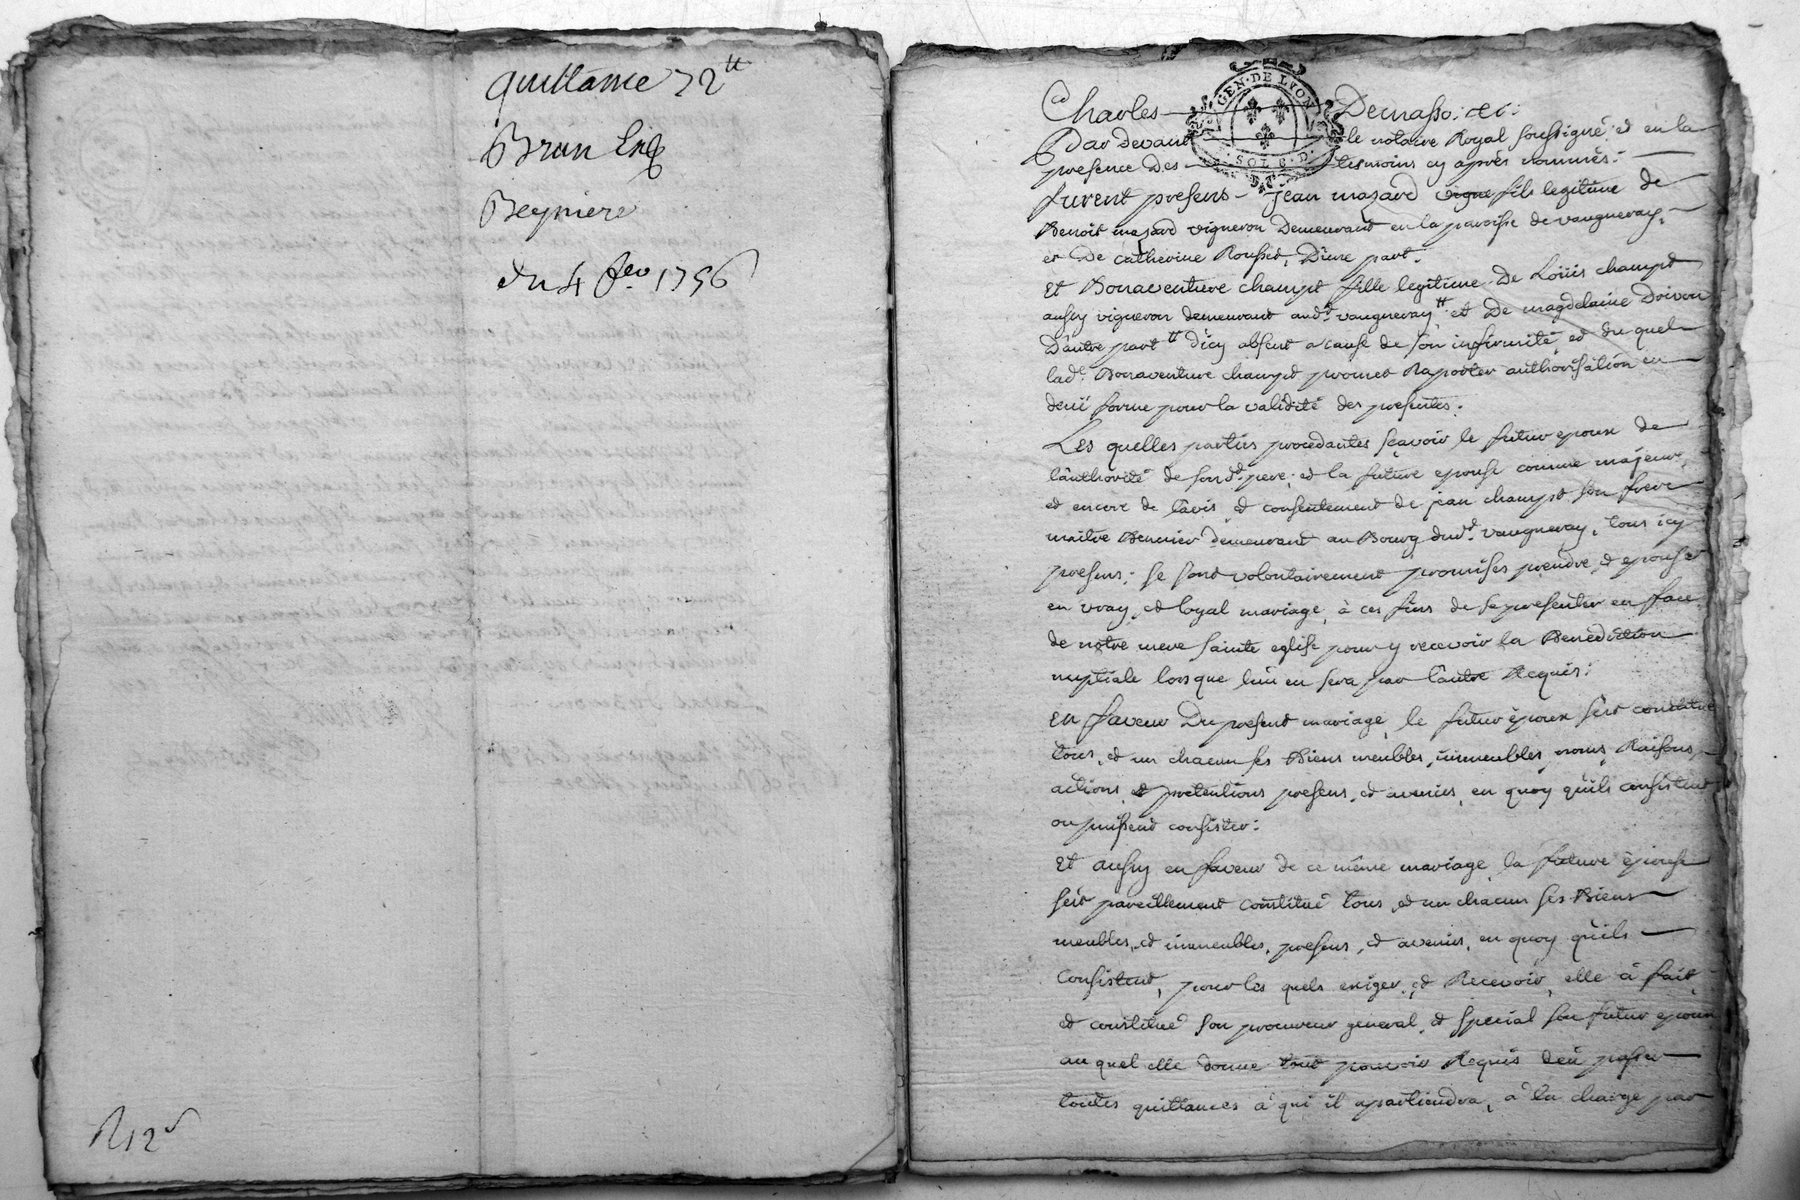 quittance 72tt
Brun
Beyniere
du 4 fev. 1756
R 12 s
GEN. DE LYON
SOLS. D.
Charles Demasso. &c:
Par devant le notaire Royal soussigné, et en la
presence des temoins cy après nommés.
furent presens - jean mazard vigne fils legitime de
Benoit mazard vigneron demeurant en la paroisse de vaugneray,
et de catherine Rousset, d'une part.
Et Bonaventure champt fille legitime de Loüis champt
aussy vigneron demeurant aud.t vaugneray tt et de magdelaine Doivon
D'autre part tt d'icy absent a cause de son infirmité, et du quel
lad.e Bonaventure champt promet Raporter authorisation en
deüe forme pour la validité des presentes.
Les quelles parties procedantes sçavoir le futur epoux de
l'authorité de sond.t pere, et la future epouse comme majeure,
et encore de l'avis, et consentement de jean champt son frere
maitre demeurant au Bourg dud.t vaugneray, tous icy
presens; se sont volontairement promises prendre, et epouser
en vray, et loyal mariage, à ces fins de se presenter en face
de notre mere sainte eglise pour y recevoir la Benediction
nuptiale lors que l'un en sera par l'autre Requis:
En faveur Du present mariage, le futur époux s'est constitué
tous, et un chacun ses Biens meubles, immeubles, noms, Raisons,
actions, et pretentions presens, et avenirs, en quoy qu'ils consistent
ou puissent consister:
Et aussy en faveur de ce même mariage, la future épouse
s'est pareillement constitué tous, et un chacun ses Biens
meubles, et immeubles, presens, et avenirs, en quoy qu'ils
consistent, pour les quels exiger, et Recevoir, elle a fait,
et constitué son procureur general, et special son futur epoux
au quel elle donne tout pouvoir Requis d'en passer
toutes quittances à qui il apartiendra, à la charge par